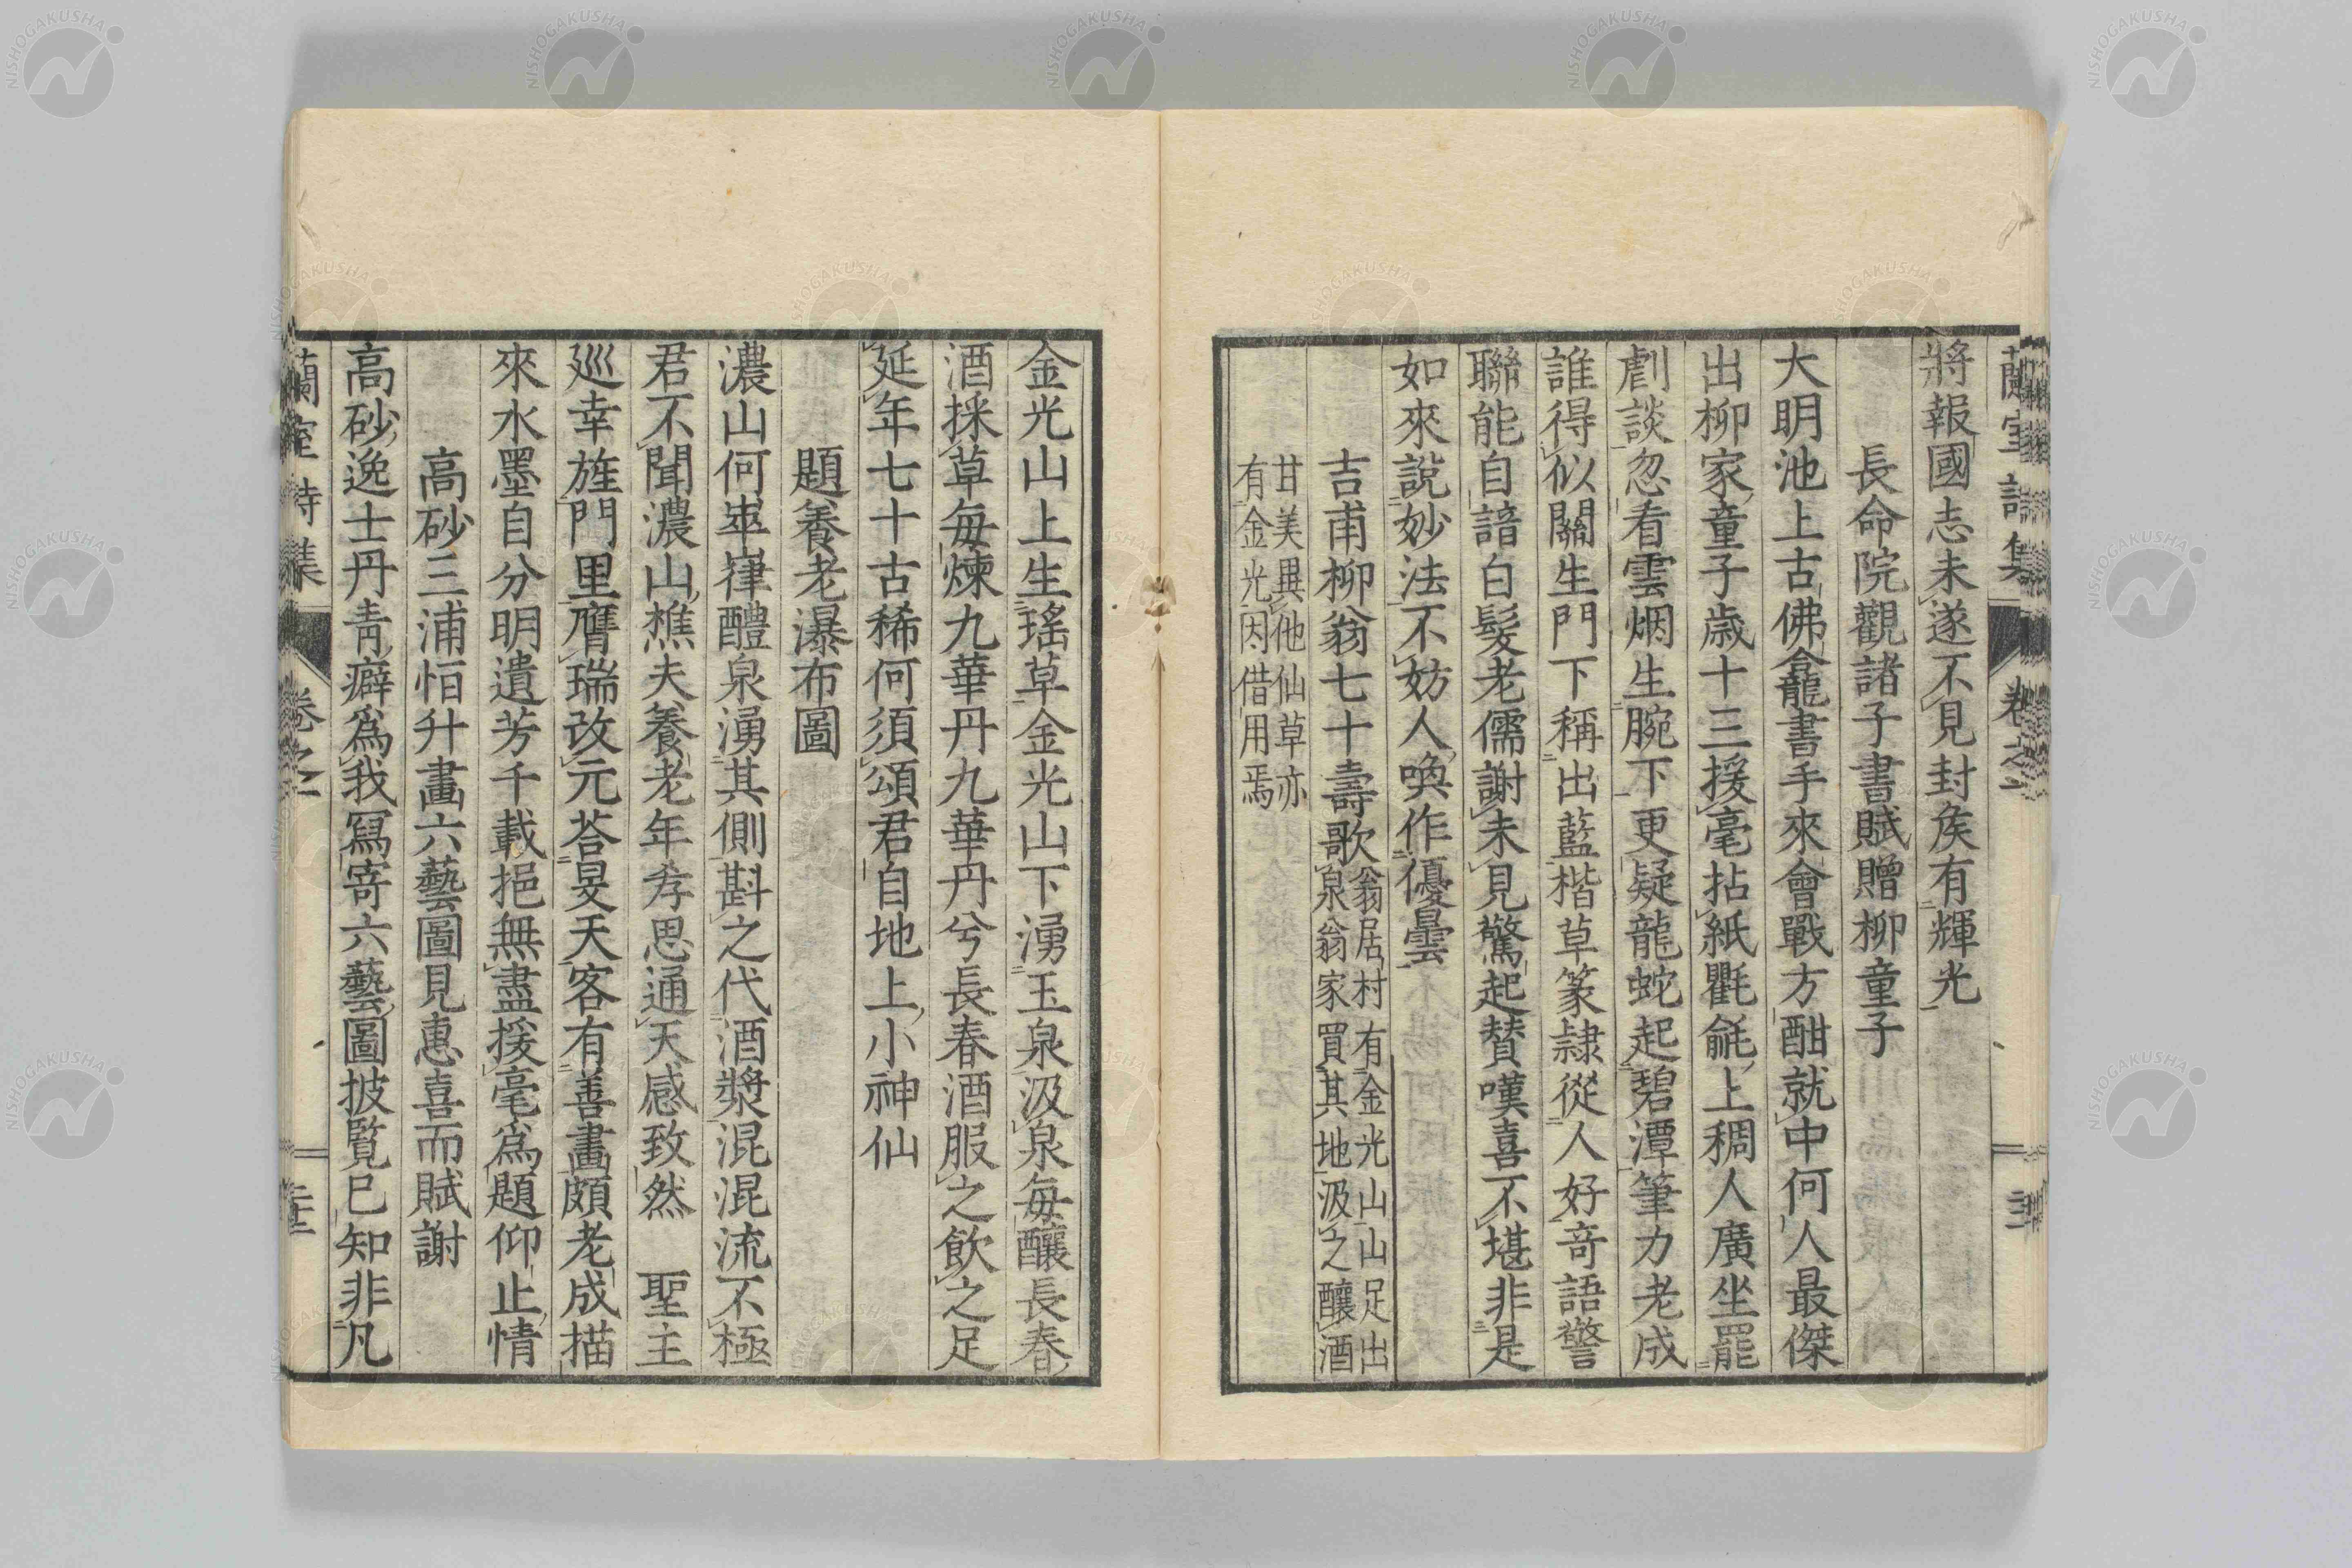 蘭室詩集 卷之一
將報國志未遂不見封矦有輝光
長命院觀諸子書賦贈柳童子
大明池上古佛龕書手來會戰方酣就中何人最傑
出柳家童子歲十三援毫拈紙氍毹上稠人廣坐罷
劇談忽看雲烟生腕下更疑龍蛇起碧潭筆力老成
誰得似關生門下稱出藍楷草篆隷從人好奇語警
聯能自諳白髮老儒謝未見驚起賛嘆喜不堪非是
如來說妙法不妨人喚作優曇
吉甫柳翁七十壽歌
翁居村有金光山山足出
泉翁家買其地汲之釀酒
甘美異他仙草亦
有金光因借用焉
金光山上生瑤草金光山下湧玉泉汲泉每釀長春
酒採草每煉九華丹九華丹兮長春酒服之飮之足
延年七十古稀何須頌君自地上小神仙
題養老瀑布圖
濃山何崒嵂醴泉湧其側斟之代酒漿混混流不極
君不聞濃山樵夫養老年孝思通天感致然 聖主
巡幸旌門里膺瑞改元荅旻天客有善畫頗老成描
來水墨自分明遺芳千載挹無盡援毫爲題仰止情
高砂三浦怕升畫六藝圖見惠喜而賦謝
高砂逸士丹靑癖爲我寫寄六藝圖披覽已知非凡
蘭室詩集 卷之一